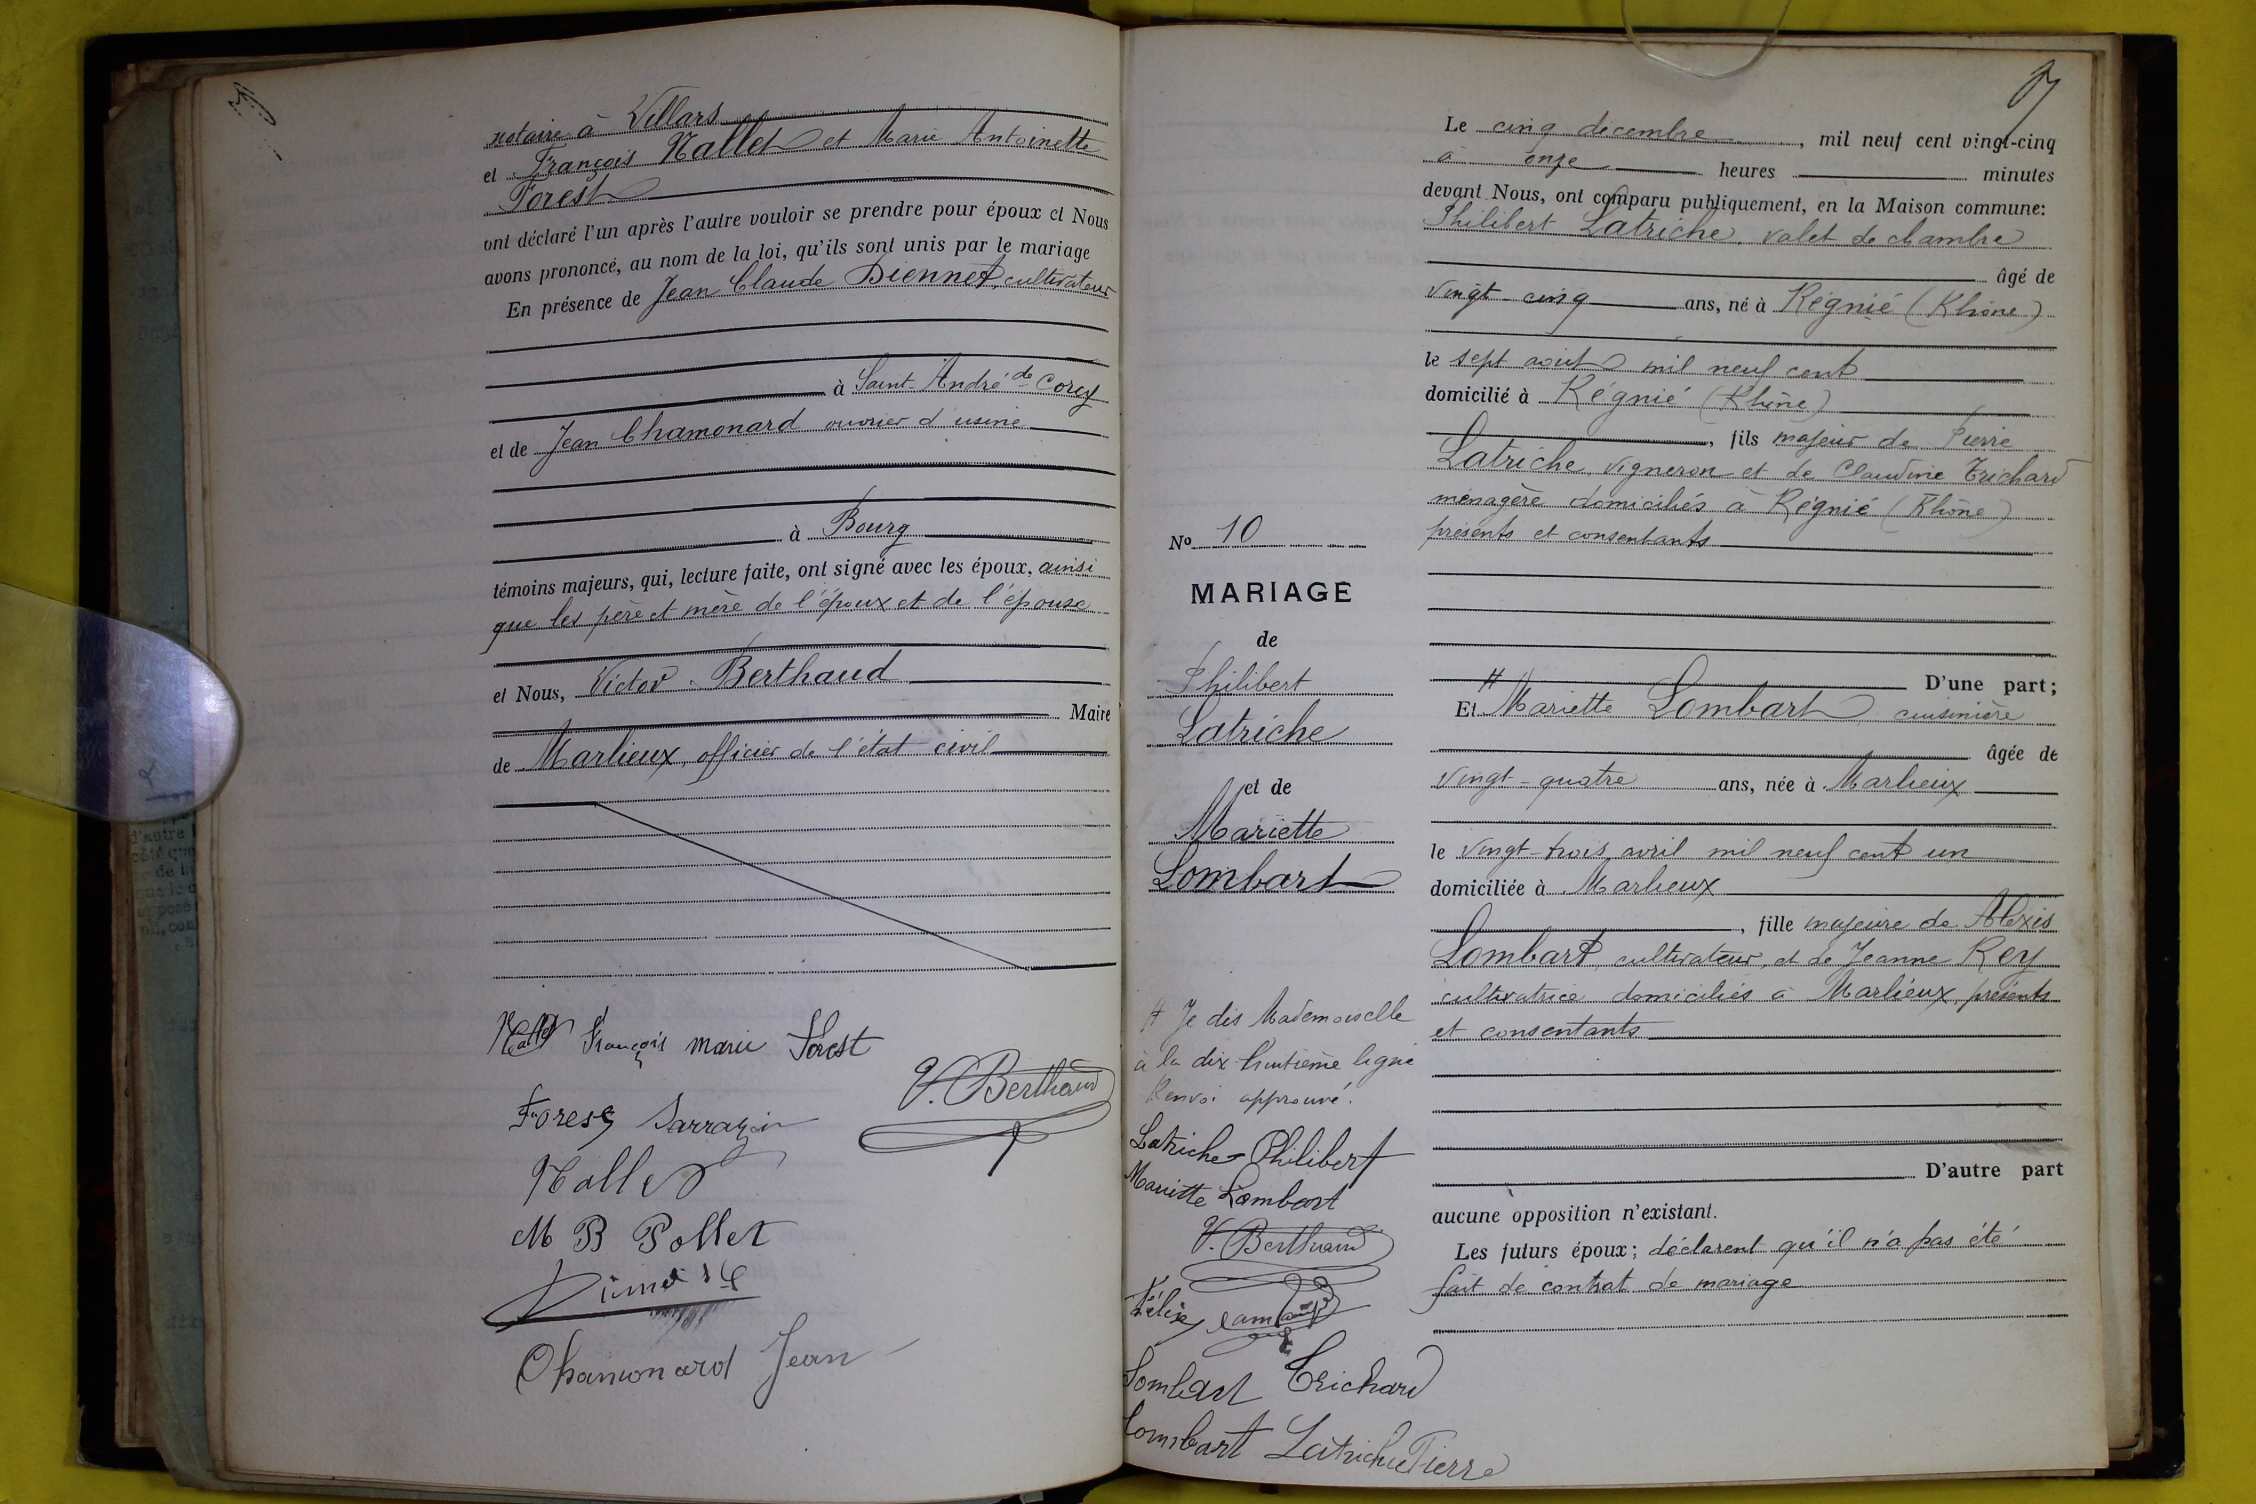 notaire à Villars
et François Nallet et Marie Antoinette
Forest
ont déclaré l'un après l'autre vouloir se prendre pour époux et Nous
avons prononcé, au nom de la loi, qu'ils sont unis par le mariage
En présence de Jean Claude Diennet, cultivateur
à Saint-André de Corcy
et de Jean Chamonard ouvrier d'usine
à Bourg
témoins majeurs, qui, lecture faite, ont signé avec les époux, ainsi
que les père et mère de l'époux et de l'épouse
et Nous, Victor Berthaud
Maire
de Marlieux, officier de l'état civil
Nallet François marie Forest
V. Berthaud
Forest Sarrazin
Nallet
M B Pollet
Chamonard Jean
Le cinq décembre, mil neuf cent vingt-cinq
à onze heures minutes
devant Nous, ont comparu publiquement, en la Maison commune:
Philibert Latriche, valet de chambre
âgé de
vingt-cinq ans, né à Régnié (Rhône)
le sept août mil neuf cent
domicilié à Régnié (Rhône)
, fils majeur de Pierre
Latriche, vigneron et de Claudine Trichard
ménagère domiciliés à Régnié (Rhône)
présents et consentants
D'une part;
Et # Mariette Lombart cuisinière
âgée de
vingt-quatre ans, née à Marlieux
le vingt-trois avril mil neuf cent un
domiciliée à Marlieux
, fille majeure de Alexis
Lombart, cultivateur, et de Jeanne Rey
cultivatrice domiciliés à Marlieux, présents
et consentants
D'autre part
aucune opposition n'existant.
Les futurs époux; déclarent qu'il n'a pas été
fait de contrat de mariage
No 10
MARIAGE
de
Philibert
Latriche
et de
Mariette
Lombart
# Je dis Mademoiselle
à la dix-huitième ligne
Renvoi approuvé.
Latriche Philibert
Mariette Lombart
V. Berthaud
Félix
Lombart Trichard
Lombart Latriche Pierre